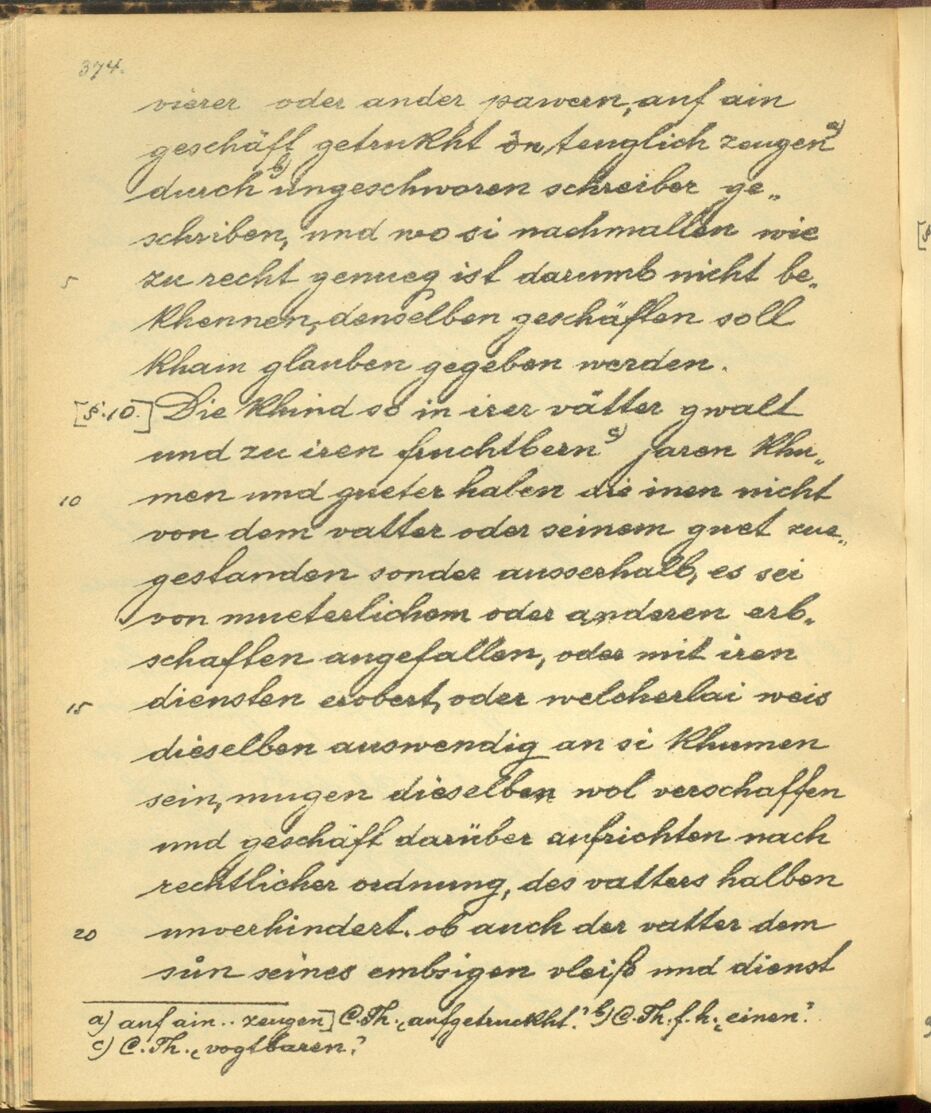 374.
vierer oder ander pawern, auf ain
geschäft getrukht ön, teuglich zeugen a)
durch b) ungeschworen schreiber ge„
schriben, und wo si nachmallen wie
5 zu recht genueg ist darumb nicht be„
khennen, denselben geschäften soll
khain glauben gegeben werden.
[§.10.] Die khind so in irer vätter gwalt
und zu iren fruchtbern c) jaren khu„
10 men und gueter haben die inen nicht
von dem vatter oder seinem guet zue„
gestanden sonder ausserhalb, es sei
von mueterlichem oder anderen erb„
schaften angefallen, oder mit iren
15 diensten erobert, oder welcherlai weis
dieselben auswendig an si khumen
sein, mugen dieselben wol verschaffen
und geschäft darüber aufrichten nach
rechtlicher ordnung, des vatters halben
20 unverhindert. ob auch der vatter dem
sůn seines embsigen vleiß und dienst
a) auf ain .. zeugen] C.Th. „aufgetruckht". b) C.Th. f. h. „einen".
c) C.Th. „vogtbaren".
[§